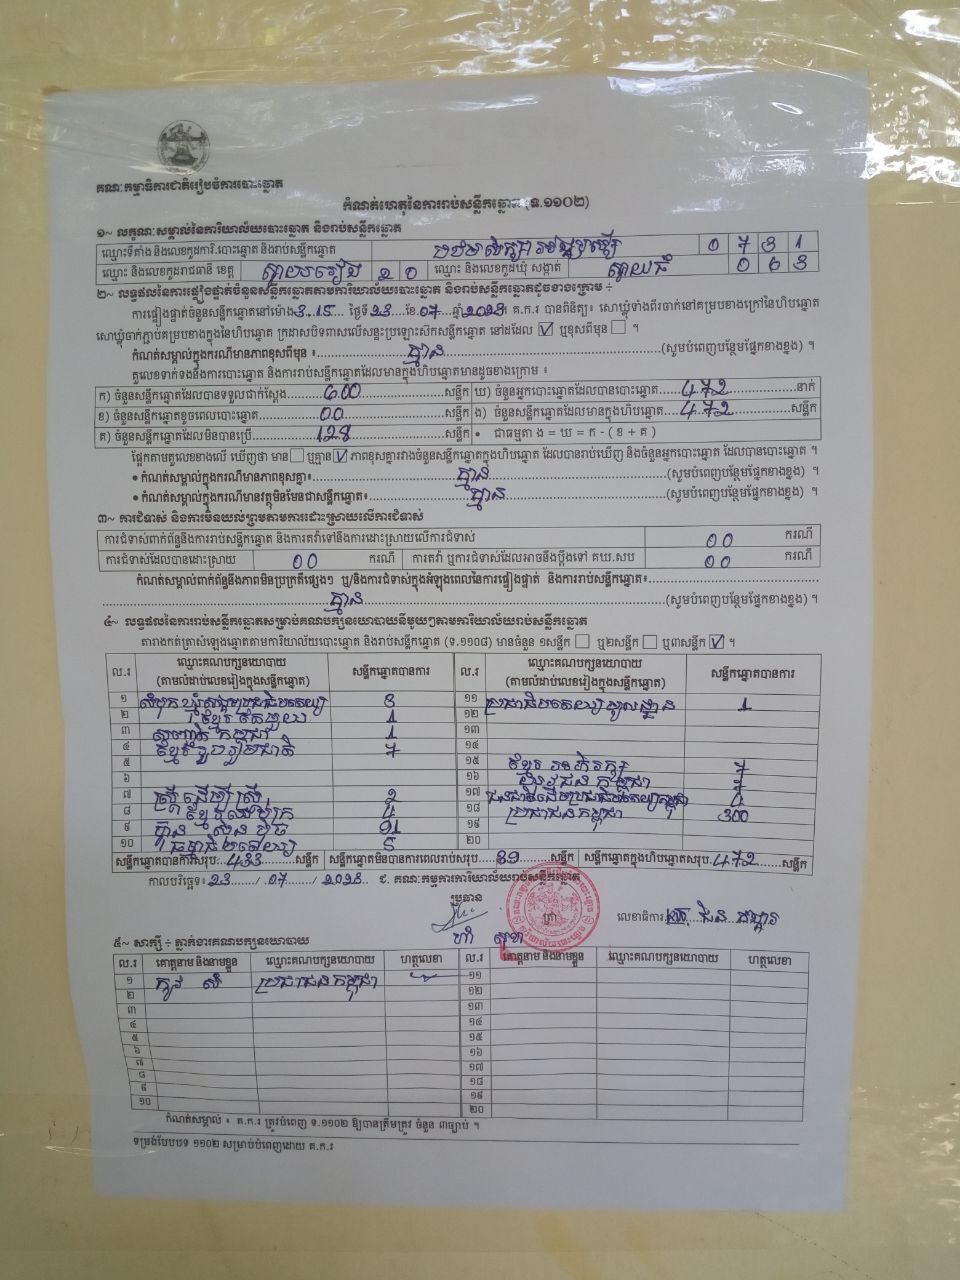 គណៈកម្មាធិការជាតិរៀបចំការបោះឆ្នោត
កំណត់ហេតុនៃការរាប់សន្លឹកឆ្នោត (ទ.១១០២)
១~ លក្ខណៈសម្គាល់នៃការិយាល័យបោះឆ្នោត និងរាប់សន្លឹកឆ្នោត
ឈ្មោះទីតាំង និងលេខកូដការិ.បោះឆ្នោត និងរាប់សន្លឹកឆ្នោត 0 7 3 1
ឈ្មោះ និងលេខកូដរាជធានី ខេត្ត ស្វាយរៀង 2 0 ឈ្មោះ និងលេខកូដឃុំ សង្កាត់ ស្វាយធំ 0 6 3
២~ លទ្ធផលនៃការផ្ទៀងផ្ទាត់ចំនួនសន្លឹកឆ្នោតតាមការិយាល័យបោះឆ្នោត និងរាប់សន្លឹកឆ្នោតដូចខាងក្រោម ÷
ការផ្ទៀងផ្ទាត់ចំនួនសន្លឹកឆ្នោតនៅម៉ោង 3.15 ថ្ងៃទី 23 ខែ 07 ឆ្នាំ 2023 ។ គ.ក.រ បានពិនិត្យ៖ សោឃ្លុំទាំងពីរចាក់នៅគម្របខាងក្រៅនៃហិបឆ្នោត
សោឃ្លុំចាក់ភ្ជាប់គម្របខាងក្នុងនៃហិបឆ្នោត ក្រដាសបិទពាសលើសន្ទះប្រឡោះស៊កសន្លឹកឆ្នោត នៅដដែល ☑ ឬខុសពីមុន ☐ ។
កំណត់សម្គាល់ក្នុងករណីមានភាពខុសពីមុន ៖ គ្មាន (សូមបំពេញបន្ថែមផ្នែកខាងខ្នង) ។
តួលេខទាក់ទងនឹងការបោះឆ្នោត និងការរាប់សន្លឹកឆ្នោតដែលមានក្នុងហិបឆ្នោតមានដូចខាងក្រោម ៖
ក) ចំនួនសន្លឹកឆ្នោតដែលបានទទួលជាក់ស្តែង 600 សន្លឹក ឃ) ចំនួនអ្នកបោះឆ្នោតដែលបានបោះឆ្នោត 472 នាក់
ខ) ចំនួនសន្លឹកឆ្នោតខូចពេលបោះឆ្នោត 00 សន្លឹក ង) ចំនួនសន្លឹកឆ្នោតដែលមានក្នុងហិបឆ្នោត 472 សន្លឹក
គ) ចំនួនសន្លឹកឆ្នោតដែលមិនបានប្រើ 128 សន្លឹក • ជាធម្មតា ង = ឃ = ក - ( ខ + គ )
ផ្អែកតាមតួលេខខាងលើ ឃើញថា មាន ☐ ឬគ្មាន ☑ ភាពខុសគ្នារវាងចំនួនសន្លឹកឆ្នោតក្នុងហិបឆ្នោត ដែលបានរាប់ឃើញ និងចំនួនអ្នកបោះឆ្នោត ដែលបានបោះឆ្នោត ។
• កំណត់សម្គាល់ក្នុងករណីមានភាពខុសគ្នា៖ គ្មាន (សូមបំពេញបន្ថែមផ្នែកខាងខ្នង) ។
• កំណត់សម្គាល់ក្នុងករណីមានវត្ថុមិនមែនជាសន្លឹកឆ្នោត៖ គ្មាន (សូមបំពេញបន្ថែមផ្នែកខាងខ្នង) ។
៣~ ការជំទាស់ និងការមិនយល់ព្រមតាមការដោះស្រាយលើការជំទាស់
ការជំទាស់ពាក់ព័ន្ធនឹងការរាប់សន្លឹកឆ្នោត និងការតវ៉ាទៅនឹងការដោះស្រាយលើការជំទាស់ 00 ករណី
ការជំទាស់ដែលបានដោះស្រាយ 00 ករណី ការតវ៉ា ឬការជំទាស់ដែលអាចនឹងប្តឹងទៅ គឃ.សប 00 ករណី
កំណត់សម្គាល់ពាក់ព័ន្ធនឹងភាពមិនប្រក្រតីផ្សេងៗ ឬ/និងការជំទាស់ក្នុងអំឡុងពេលនៃការផ្ទៀងផ្ទាត់ និងការរាប់សន្លឹកឆ្នោត៖
គ្មាន (សូមបំពេញបន្ថែមផ្នែកខាងខ្នង) ។
៤~ លទ្ធផលនៃការរាប់សន្លឹកឆ្នោតសម្រាប់គណបក្សនយោបាយនីមួយៗតាមការិយាល័យរាប់សន្លឹកឆ្នោត
តារាងកត់ត្រាសំឡេងឆ្នោតតាមការិយាល័យបោះឆ្នោត និងរាប់សន្លឹកឆ្នោត (ទ.១១០៨) មានចំនួន ១សន្លឹក ☐ ឬ២សន្លឹក ☐ ឬ៣សន្លឹក ☑ ។
ល.រ ឈ្មោះគណបក្សនយោបាយ (តាមលំដាប់លេខរៀងក្នុងសន្លឹកឆ្នោត) សន្លឹកឆ្នោតបានការ ល.រ ឈ្មោះគណបក្សនយោបាយ (តាមលំដាប់លេខរៀងក្នុងសន្លឹកឆ្នោត) សន្លឹកឆ្នោតបានការ
១ សំបុកឃ្មុំសង្គមប្រជាធិបតេយ្យ 8 ១១ ប្រជាធិបតេយ្យមូលដ្ឋាន 1
២ ខ្មែរតែមួយ 1 ១២
៣ សញ្ជាតិកម្ពុជា 1 ១៣
៤ ខ្មែររួបរួមជាតិ 7 ១៤
៥ ១៥ ខ្មែរអភិរក្ស 7
៦ ១៦ យុវជនកម្ពុជា 7
៧ ស្ត្រីដើម្បីស្ត្រី 2 ១៧ ជនជាតិដើមប្រជាធិបតេយ្យកម្ពុជា 4
៨ 4 ១៨ ប្រជាជនកម្ពុជា 300
៩ ហ្វ៊ុនស៊ិនប៉ិច 91 ១៩
១០ ធម្មាធិបតេយ្យ 5 ២០
សន្លឹកឆ្នោតបានការសរុប 433 សន្លឹក សន្លឹកឆ្នោតមិនបានការពេលរាប់សរុប 39 សន្លឹក សន្លឹកឆ្នោតក្នុងហិបឆ្នោតសរុប 472 សន្លឹក
កាលបរិច្ឆេទ៖ 23 / 07 / 2023 ជ. គណៈកម្មការការិយាល័យរាប់សន្លឹកឆ្នោត
ប្រធាន ត្រា លេខាធិការ
ហ៊ា សុខា
៥~ សាក្សី ÷ ភ្នាក់ងារគណបក្សនយោបាយ
ល.រ គោត្តនាម និងនាមខ្លួន ឈ្មោះគណបក្សនយោបាយ ហត្ថលេខា ល.រ គោត្តនាម និងនាមខ្លួន ឈ្មោះគណបក្សនយោបាយ ហត្ថលេខា
១ ប្រជាជនកម្ពុជា ១១
២ ១២
៣ ១៣
៤ ១៤
៥ ១៥
៦ ១៦
៧ ១៧
៨ ១៨
៩ ១៩
១០ ២០
កំណត់សម្គាល់ ៖ គ.ក.រ ត្រូវបំពេញ ទ.១១០២ ឱ្យបានត្រឹមត្រូវ ចំនួន ៣ច្បាប់ ។
ទម្រង់បែបបទ ១១០២ សម្រាប់បំពេញដោយ គ.ក.រ